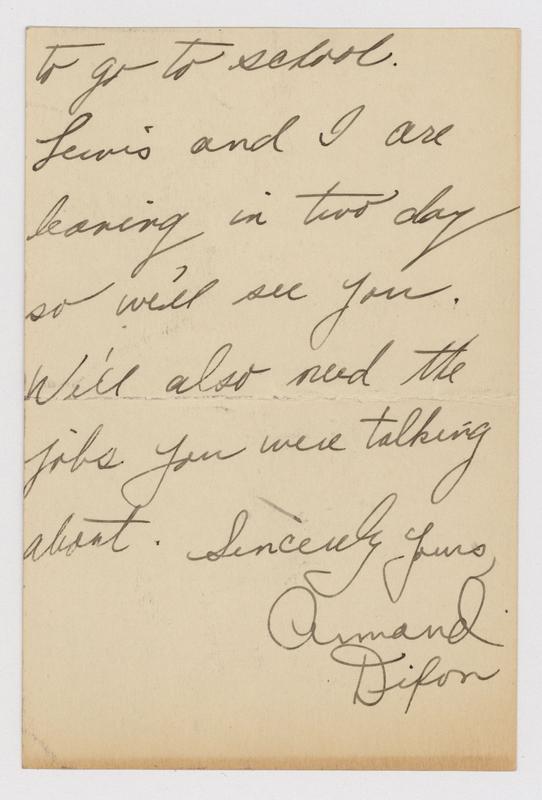 to go to school.
Lewis and I are
leaving in two day
so we'll see you.
We'll also need the
jobs you were talking
about. Sincerely yours,
Armand
Dixon